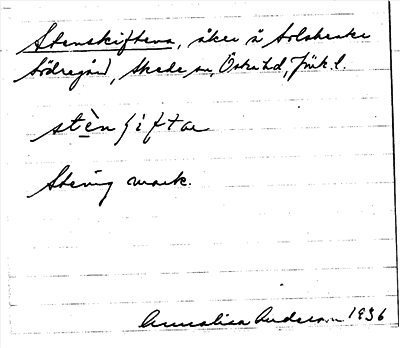 Stenskiftena, åker å
Södregård, Skede sn, Östra hd, Jönk. l.
stèn ʃifta
Stenig mark.
Annalisa Anderson 1936